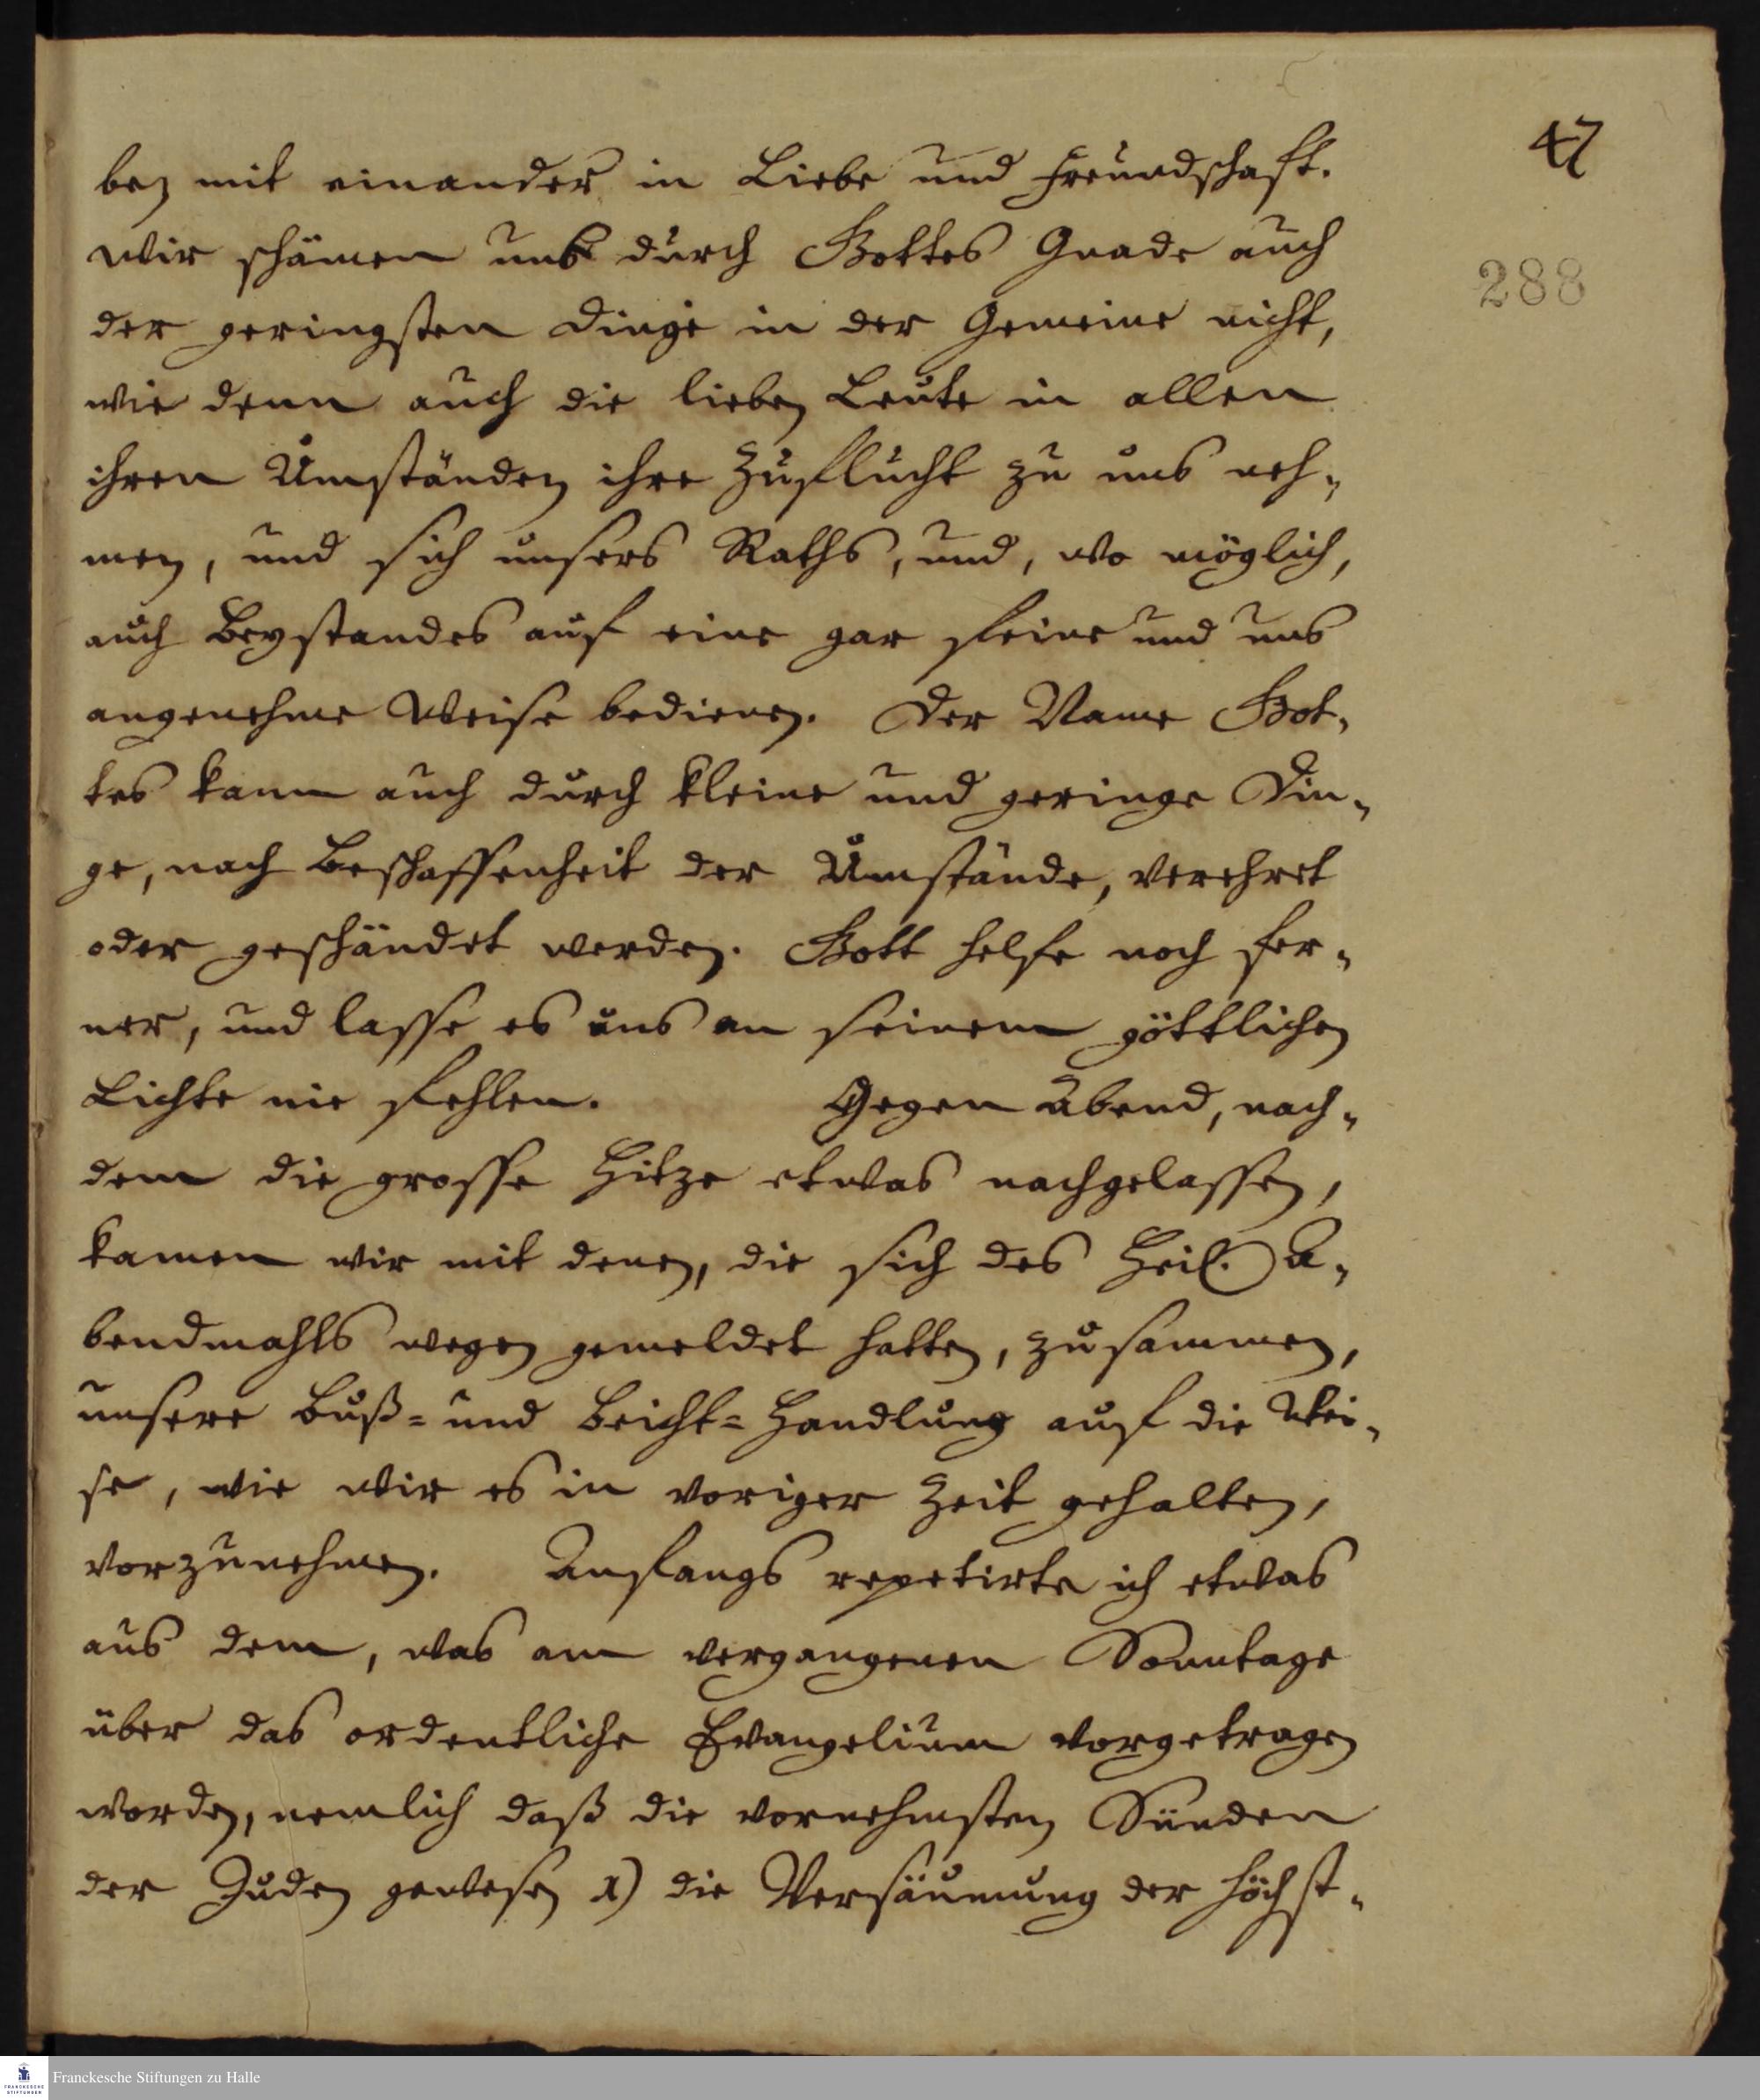 47
288
ben mit einander in Liebe und Freundschaft.
Wir schämen uns durch Gottes Gnade auch
der geringsten Dinge in der Gemeine nicht,
wie denn auch die lieben Leute in allen
ihren Umständen ihre Zuflucht zu uns neh-
men, und sich unsers Raths, und, wo möglich,
auch Beystandes auf eine gar feine und uns
angenehme Weise bedienen. Der Name Got-
tes kann auch durch kleine und geringe Din-
ge, nach Beschaffenheit der Umstände, verehret
oder geschändet werden. Gott helfe noch fer-
ner, und lasse es uns an seinem göttlichen
Lichte nie fehlen. Gegen Abend, nach-
dem die grosse Hitze etwas nachgelassen,
kamen wir mit denen, die sich des Heil. A-
bendmahls wegen gemeldet hatten, zusammen,
unsere Buß- und Beicht-Handlung auf die Wei-
se, wie wir es in voriger Zeit gehalten,
vorzunehmen. Anfangs repetirte ich etwas
aus dem, was am vergangenen Sonntage
über das ordentliche Evangelium vorgetragen
worden, nemlich daß die vornehmsten Sünden
der Juden gewesen 1) die Versäumung der höchst-
FRANCKESCHE STIFTUNGEN
Franckesche Stiftungen zu Halle